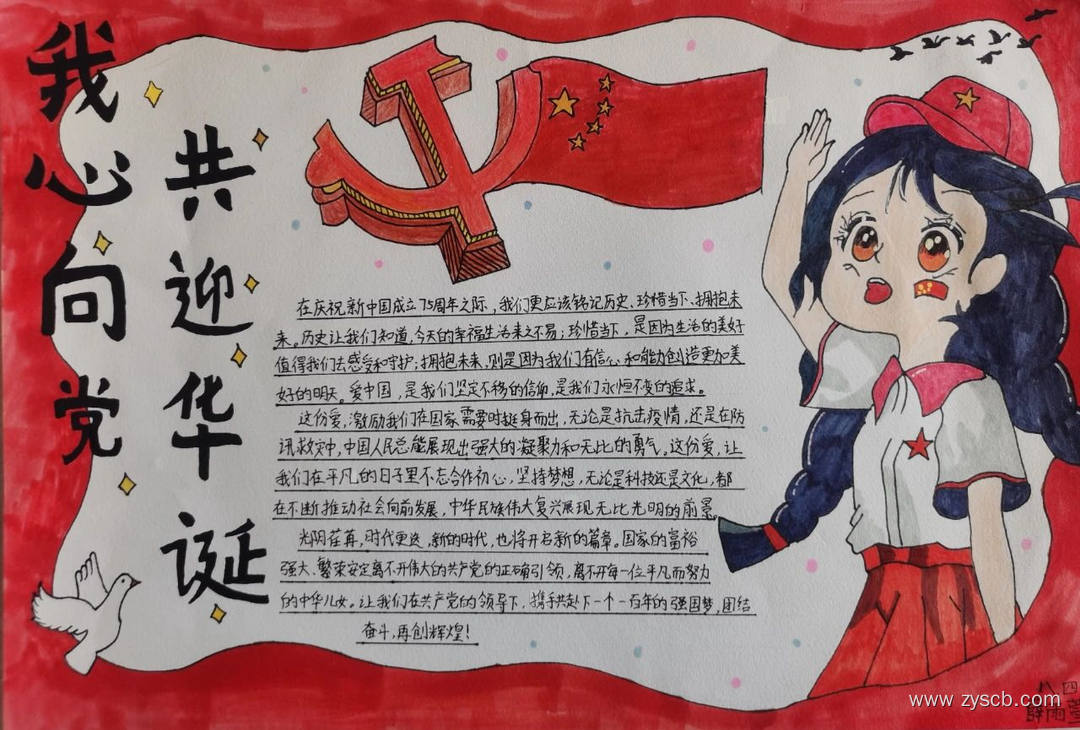 我心向党
共迎华诞
在庆祝新中国成立75周年之际，我们更应该铭记历史、珍惜当下、拥抱未
来。历史让我们知道，今天的幸福生活来之不易；珍惜当下，是因为生活的美好
值得我们去感受和守护；拥抱未来，则是因为我们有信心和能力创造更加美
好的明天。爱中国，是我们坚定不移的信仰，是我们永恒不变的追求。
这份爱，激励我们在国家需要时挺身而出，无论是抗击疫情，还是在防
汛救灾中，中国人民总能展现出强大的凝聚力和无比的勇气。这份爱，让
我们在平凡的日子里不忘合作初心，坚持梦想，无论是科技还是文化，都
在不断推动社会向前发展，中华民族伟大复兴展现无比光明的前景。
光阴荏苒，时代更迭，新的时代，也将开启新的篇章。国家的富裕
强大、繁荣安定离不开伟大的共产党的正确引领，离不开每一位平凡而努力
的中华儿女。让我们在共产党的领导下，携手共赴下一个一百年的强国梦，团结
奋斗，再创辉煌！
八四
薛雨萱
www.zyscb.com